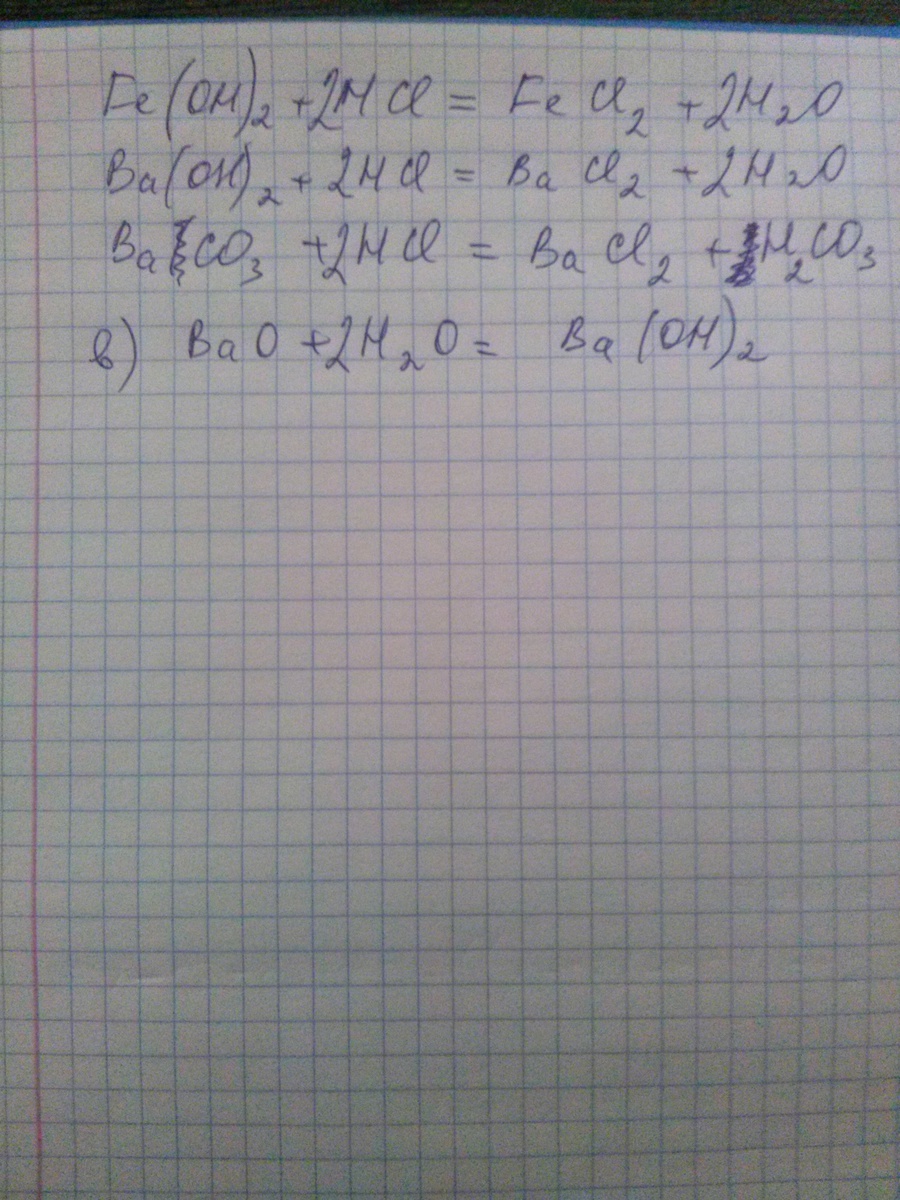 Fe(OH)₂ + 2HCl = FeCl₂ + 2H₂O
Ba(OH)₂ + 2HCl = BaCl₂ + 2H₂O
BaCO₃ + 2HCl = BaCl₂ + H₂CO₃
в) BaO + 2H₂O = Ba(OH)₂